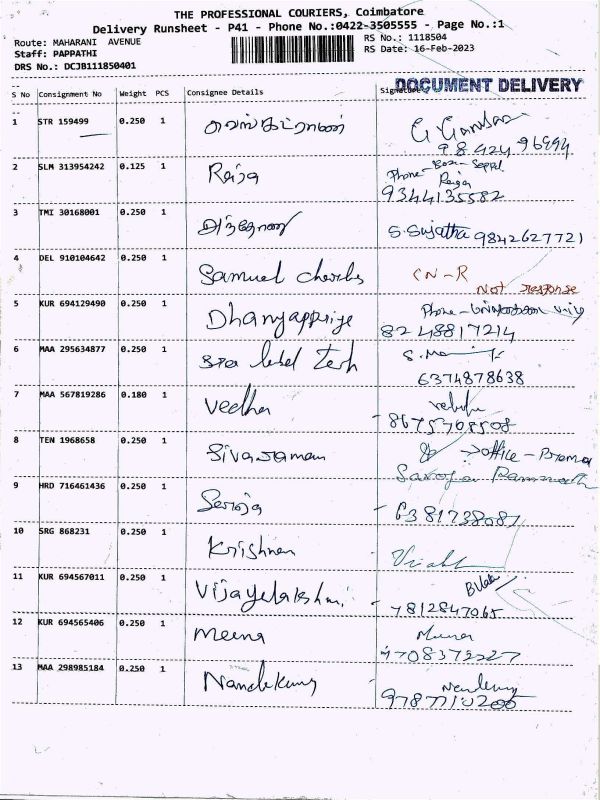 THE PROFESSIONAL COURIERS, Coimbatore
Delivery Runsheet - P41 - Phone No.:0422-3505555 - Page No.:1
Route: MAHARANI AVENUE
RS No.: 1118504
Staff: PAPPATHI
RS Date: 16-Feb-2023
DRS No.: DCJB111850401
DOCUMENT DELIVERY
S No Consignment No Weight PCS Consignee Details Signature
1 STR 159499 0.250 1
2 SLM 313954242 0.125 1 Raja
9344135582
3 TMI 30168001 0.250 1 S. Sujatha 9842627721
4 DEL 910104642 0.250 1 Samuel charles CN-R
Not response
5 KUR 694129490 0.250 1 Dhanyappriya Phone-
8248817214
6 MAA 295634877 0.250 1 label Tech
6374878638
7 MAA 567819286 0.180 1 Veedha
8675708508
8 TEN 1968658 0.250 1 Sivaraman office -
9 HRD 716461436 0.250 1 Saroja
6381738087
10 SRG 868231 0.250 1 Krishnan
11 KUR 694567011 0.250 1 Vijayalakshmi
7812847065
12 KUR 694565406 0.250 1 Meena
13 MAA 298985184 0.250 1 Nandakumar